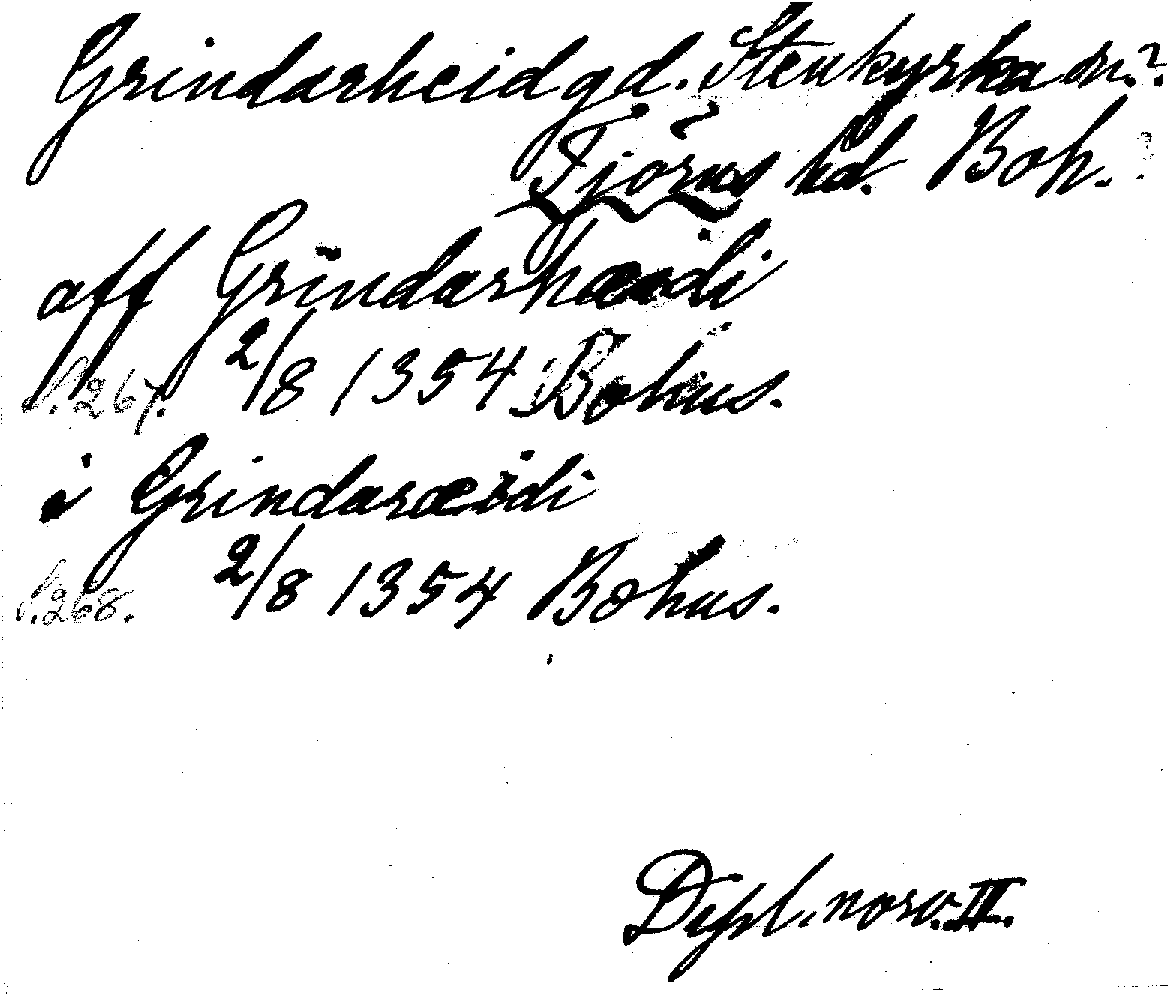 Grindarheid gd. Stenkyrka sn.?
Tjörns hd. Boh.?
aff Grindarhæidi
s. 267. 2/8 1354 Bohus.
i Grindaræidi
s. 268. 2/8 1354 Bohus.
Dipl. norv. II.